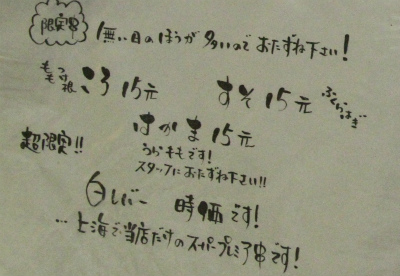 限定界
無い日のほうが多いので おたずね下さい!
ももつけ根 ころ 15元
すそ 15元 ふくらはぎ
はかま 15元
うちモモです!
超限定!! スタッフにおたずね下さい!!
白レバー 時価です!
…上海で当店だけのスーパープレミア串です!